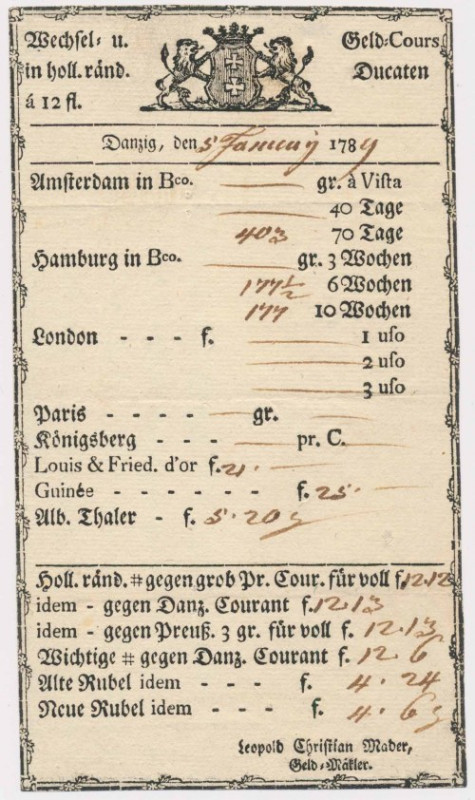 Wechsel- u. Geld-Cours
in holl. ränd. Ducaten
á 12 fl.
Danzig, den 5 January 1789
Amsterdam in Bco. gr. à Vista
40 Tage
403 70 Tage
Hamburg in Bco. gr. 3 Wochen
177½ 6 Wochen
177 10 Wochen
London - - - f. 1 uso
2 uso
3 uso
Paris - - - - - gr.
Königsberg - - - pr. C.
Louis & Fried. d'or f. 21.
Guinée - - - - - - f. 25.
Alb. Thaler - f. 5. 20
Holl. ränd. # gegen grob Pr. Cour. für voll f. 12. 12
idem - gegen Danz. Courant f. 12. 13
idem - gegen Preuß. 3 gr. für voll f. 12. 13
Wichtige # gegen Danz. Courant f. 12. 6
Alte Rubel idem - - - f. 4. 24
Neue Rubel idem - - - f. 4. 6
Leopold Christian Mader,
Geld-Mäkler.